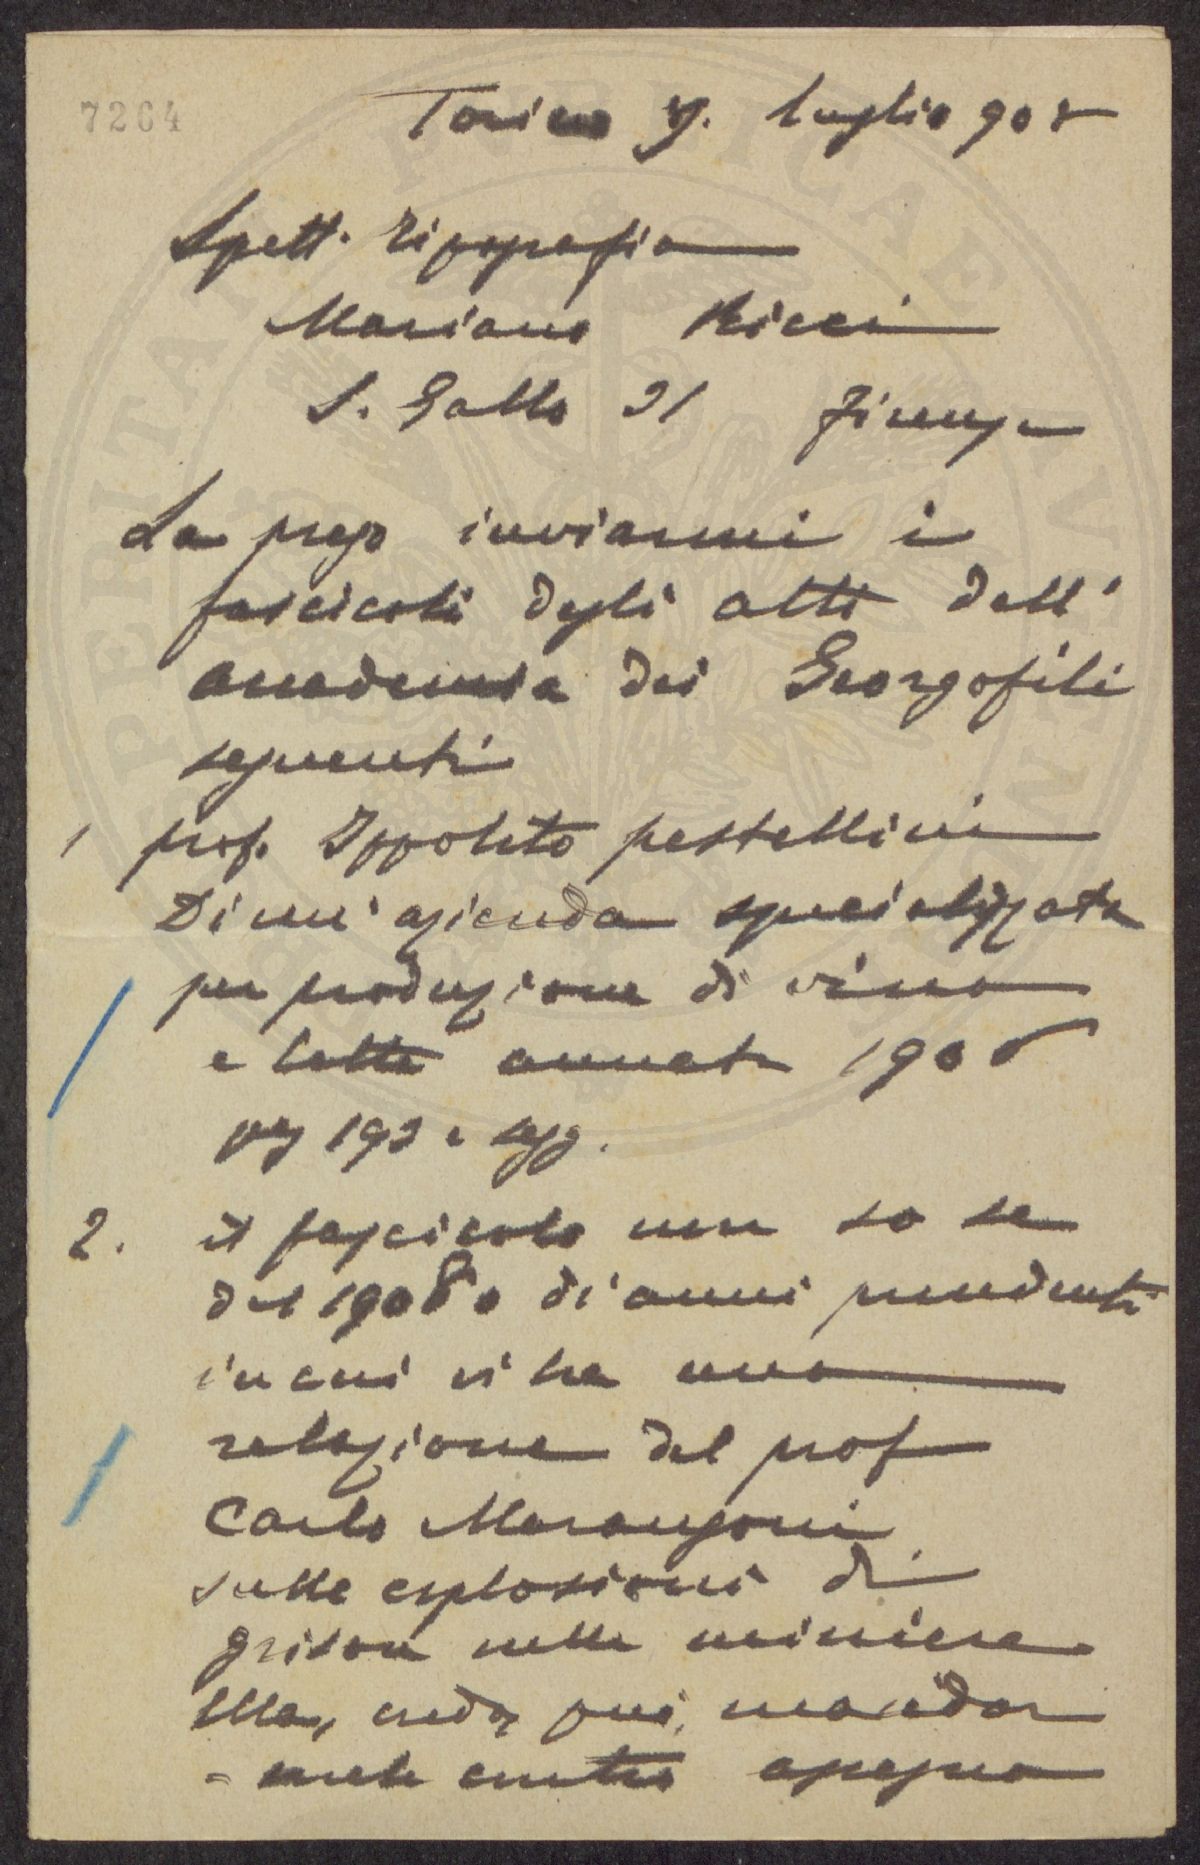 7264
Torino 7. luglio 908
Spett. Tipografia
Mariano Ricci
S. Gallo 31 Firenze
La prego inviarmi i
fascicoli degli atti dell'
accademia dei Georgofili
seguenti
1 prof. Ippolito pestellini
Di un' azienda specializzata
per produzione di vino
e latte annata 1908
pag 193 e segg.
2. il fascicolo non so se
del 1908 o di anni precedenti
in cui vi ha una
relazione del prof
Carlo Marangoni
sulle esplosioni di
grisou nelle miniere
Ella, credo, può mandar
= mele contro assegno